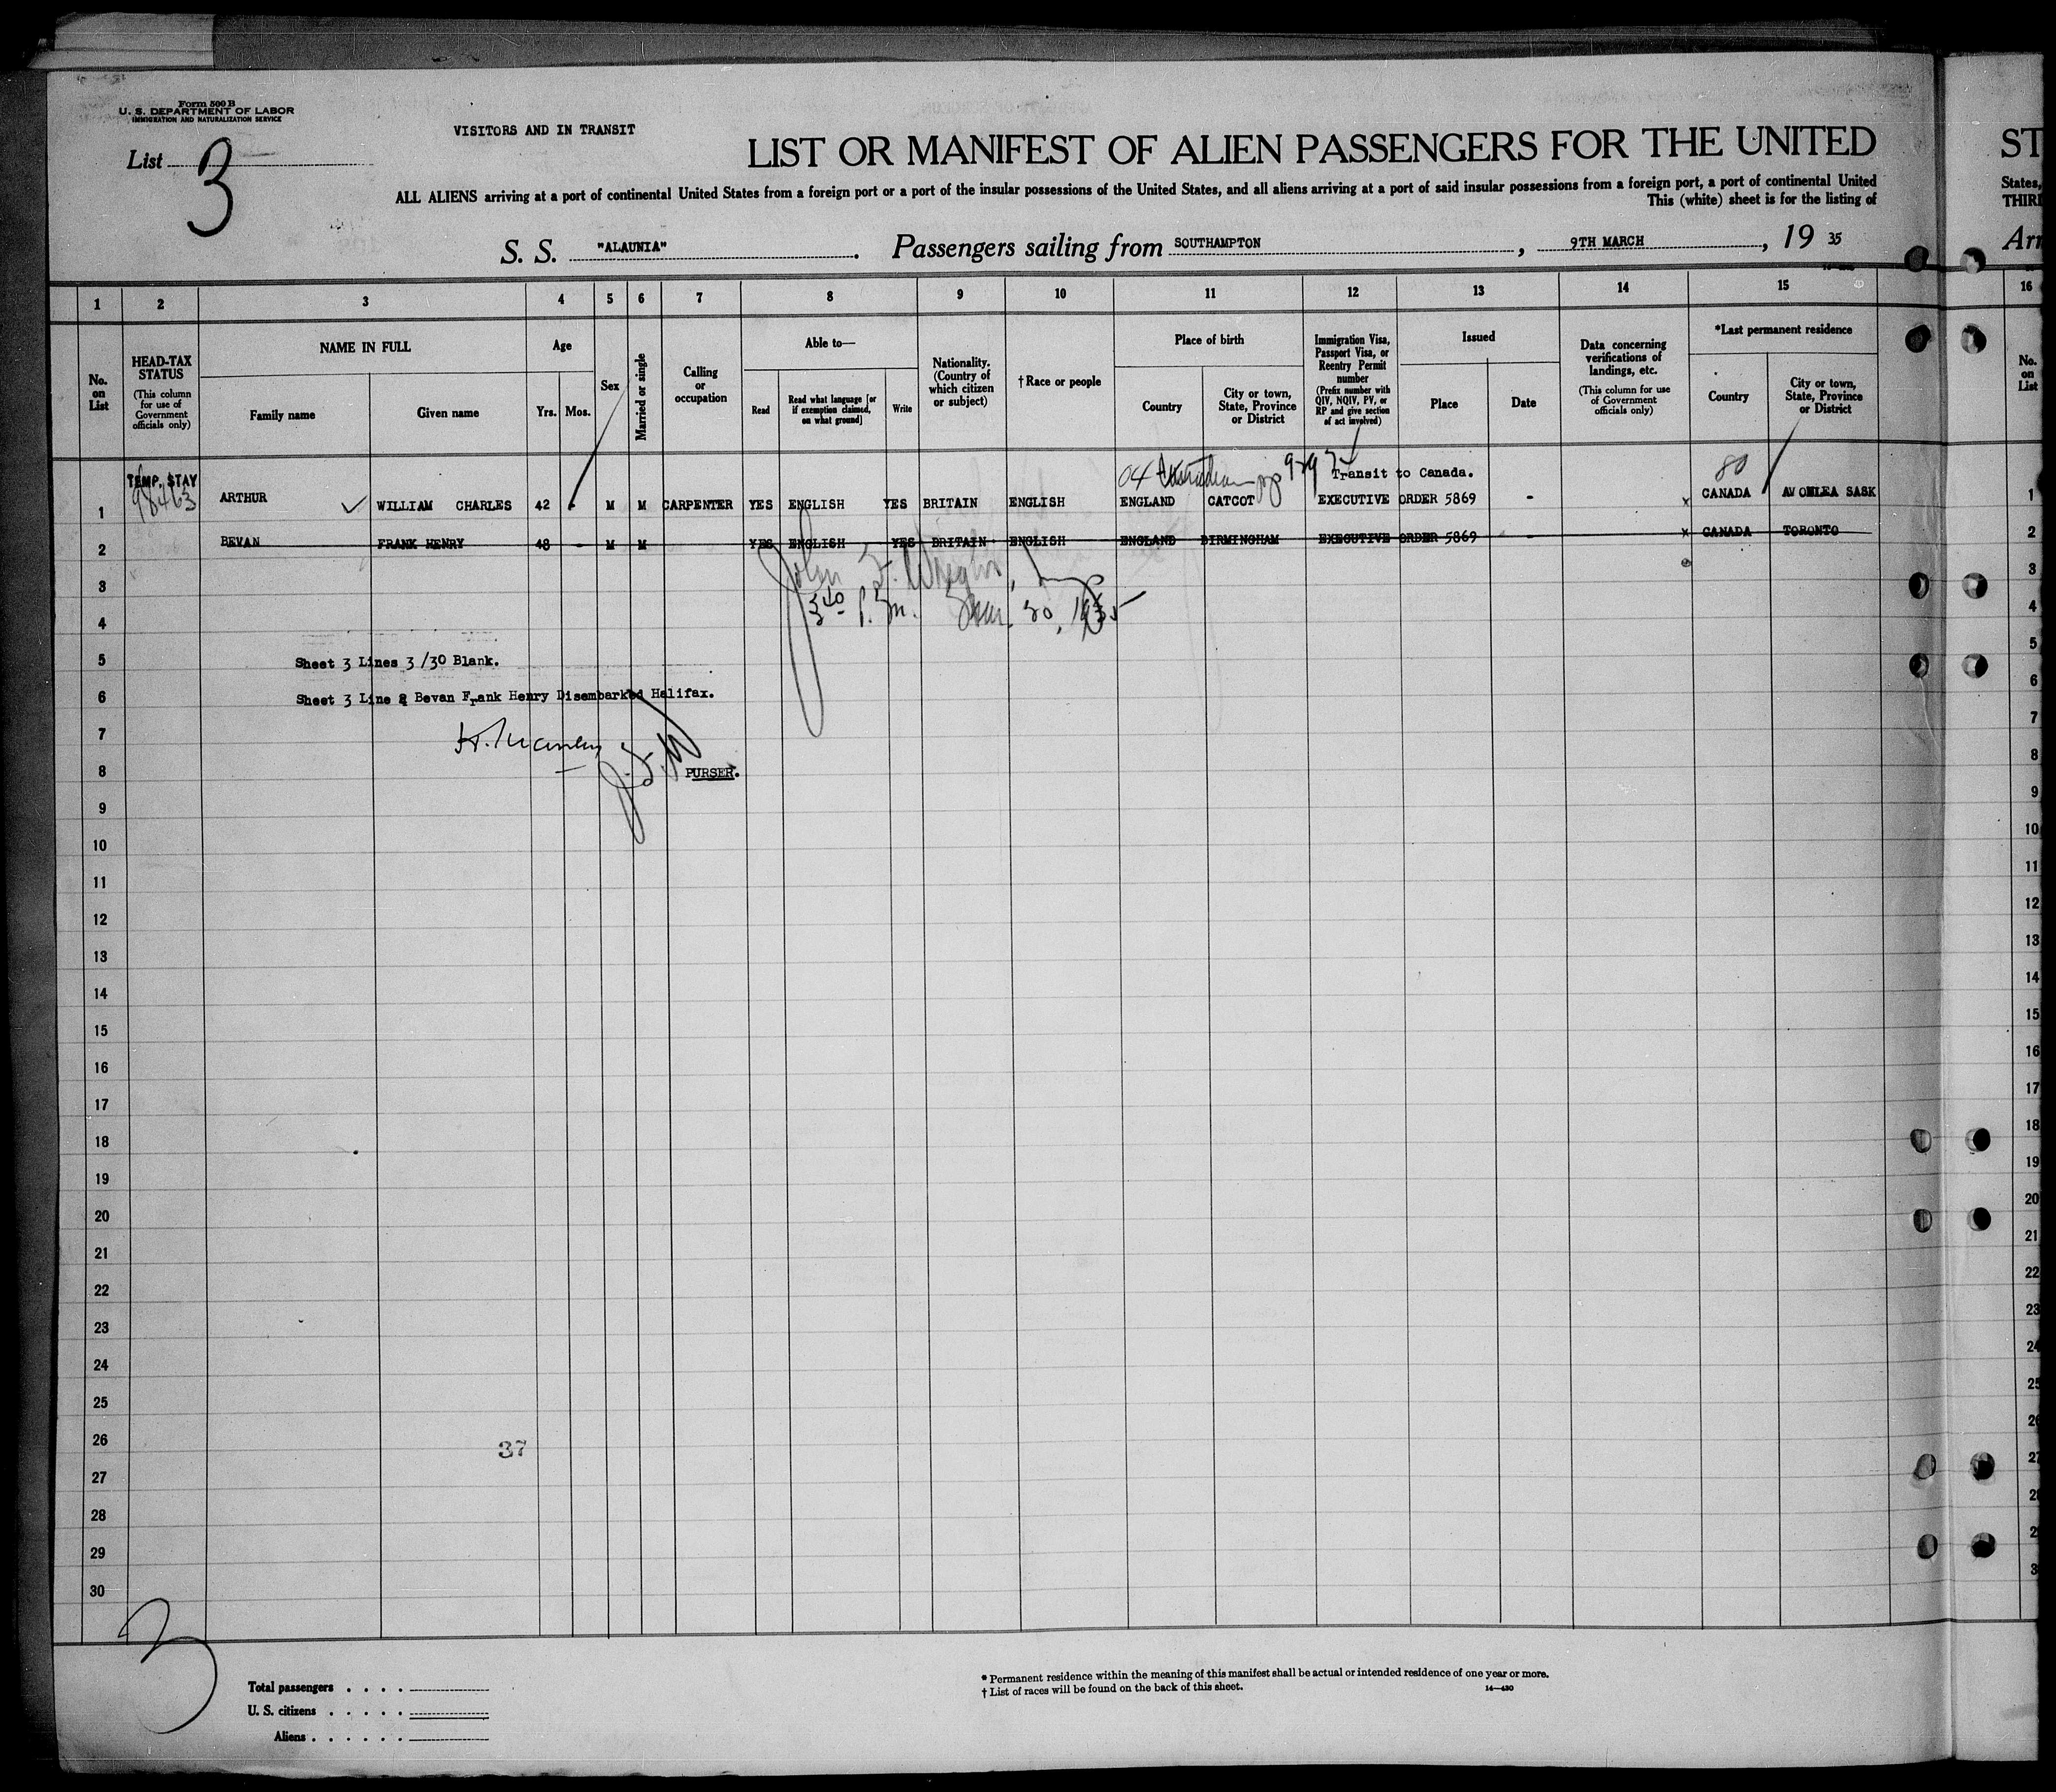 Form 500 B
U. S. DEPARTMENT OF LABOR
IMMIGRATION AND NATURALIZATION SERVICE
List 3
VISITORS AND IN TRANSIT
LIST OR MANIFEST OF ALIEN PASSENGERS FOR THE UNITED
ST
ALL ALIENS arriving at a port of continental United States from a foreign port or a port of the insular possessions of the United States, and all aliens arriving at a port of said insular possessions from a foreign port, a port of continental United
States,
This (white) sheet is for the listing of
THIRD
S. S. "ALAUNIA". Passengers sailing from SOUTHAMPTON, 9TH MARCH, 19 35
Arr
1 2 3 4 5 6 7 8 9 10 11 12 13 14 15 16
No. on List
HEAD-TAX STATUS
(This column for use of Government officials only)
NAME IN FULL
Family name
Given name
Age
Yrs.
Mos.
Sex
Married or single
Calling or occupation
Able to—
Read
Read what language [or if exemption claimed, on what ground]
Write
Nationality. (Country of which citizen or subject)
† Race or people
Place of birth
Country
City or town, State, Province or District
Immigration Visa, Passport Visa, or Reentry Permit number
(Prefix number with QIV, NQIV, PV, or RP and give section of act involved)
Issued
Place
Date
Data concerning verifications of landings, etc.
(This column for use of Government officials only)
*Last permanent residence
Country
City or town, State, Province or District
No. on List
TEMP. STAY
98463
04
Transit to Canada.
80
1 ARTHUR WILLIAM CHARLES 42 - M M CARPENTER YES ENGLISH YES BRITAIN ENGLISH ENGLAND CATCOT EXECUTIVE ORDER 5869 - x CANADA AVONLEA SASK 1
2 BEVAN FRANK HENRY 48 - M M YES ENGLISH YES BRITAIN ENGLISH ENGLAND BIRMINGHAM EXECUTIVE ORDER 5869 - x CANADA TORONTO 2
3 3
John
4 4
3 40 P.M. 20, 1935
5 Sheet 3 Lines 3/30 Blank. 5
6 Sheet 3 Line 2 Bevan Frank Henry Disembarked Halifax. 6
7 7
8 PURSER. 8
9 9
10 10
11 11
12 12
13 13
14 14
15 15
16 16
17 17
18 18
19 19
20 20
21 21
22 22
23 23
24 24
25 25
26 26
37
27 27
28
29
30
3
Total passengers
U. S. citizens
Aliens
* Permanent residence within the meaning of this manifest shall be actual or intended residence of one year or more.
† List of races will be found on the back of this sheet.
14—430